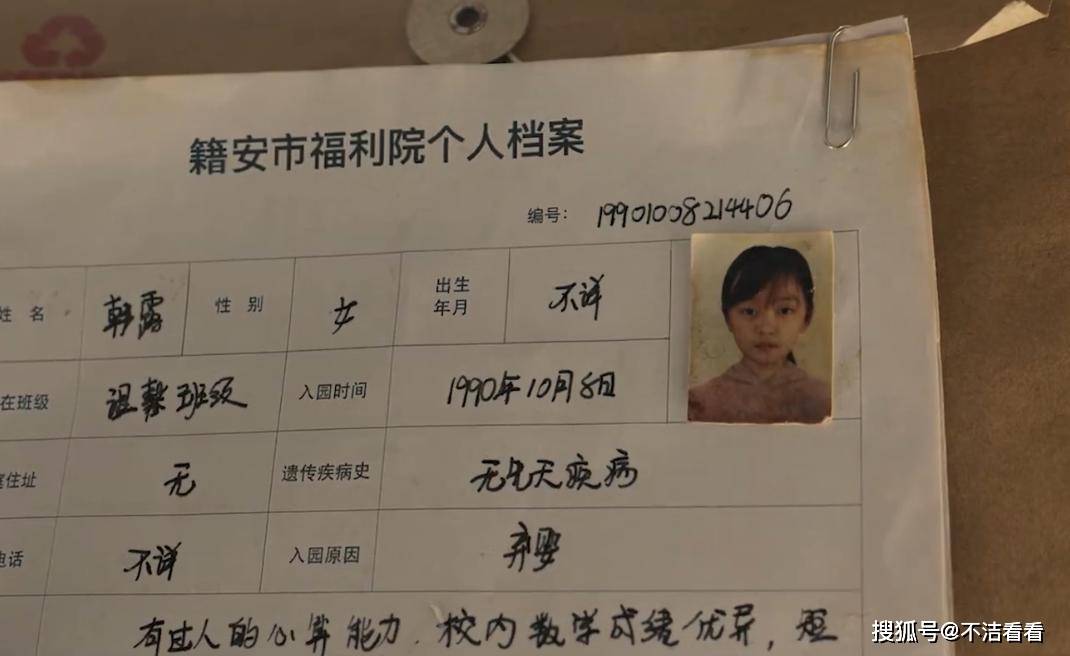 籍安市福利院个人档案
编号： 19901008214406
姓 名 韩露 性 别 女 出生年月 不详
在班级 温馨班级 入园时间 1990年10月8日
住址 无 遗传疾病史 无先天疾病
电话 不详 入园原因 弃婴
有过人的心算能力．校内数学成绩优异，
搜狐号@不洁看看